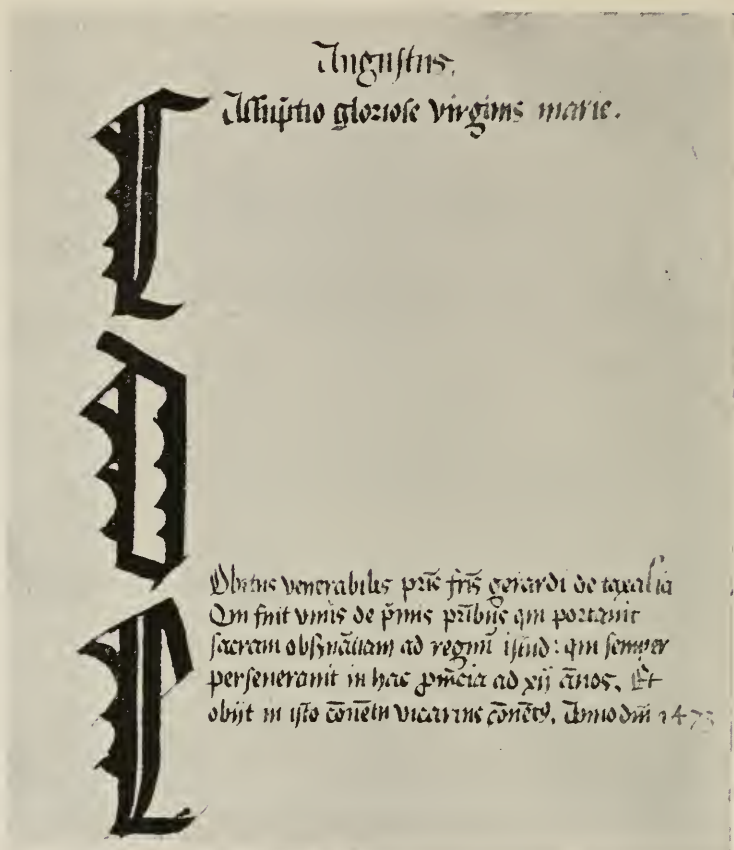 Augustus.
Assūptio gloriose virginis marie.
C
D
E
Obitus venerabilis pris fr̄is gerardi de taxalia
Qui fuit unus de p̄mis pr̄ibus qui portauit
sacram obs̄uātiam ad regnū istud: qui semper
perseuerauit in hac ꝓuīcia ad xij ānos. Et
obijt in isto cōuētu vicarius cōuēt9. Anno dn̄i 147